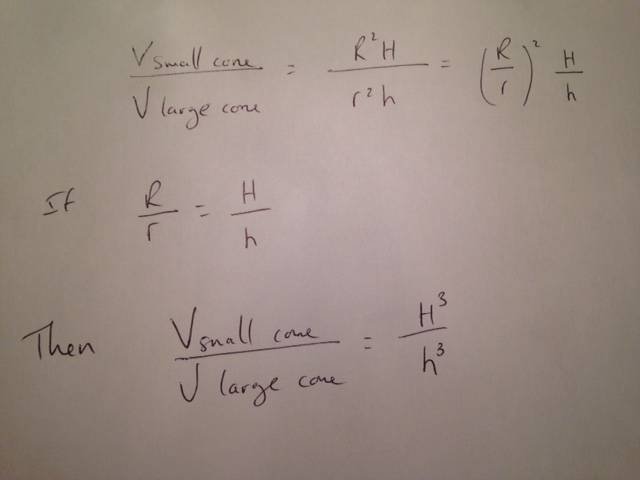 V small cone / V large cone = R²H / r²h = (R/r)² H/h
If R/r = H/h
Then V small cone / V large cone = H³/h³